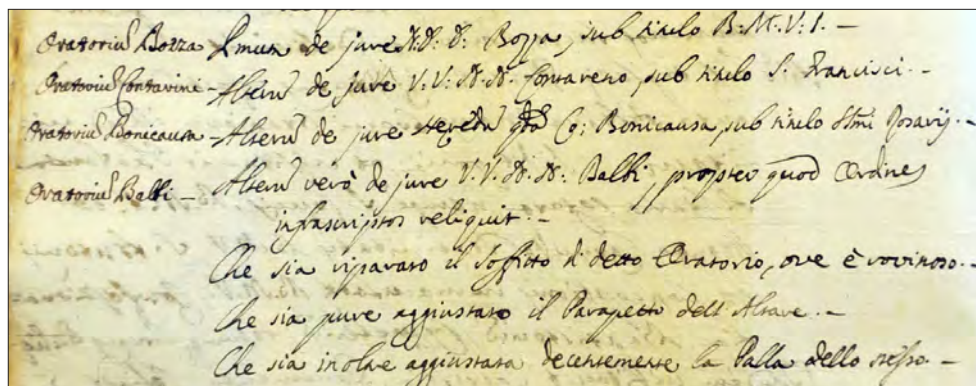 Oratoriũ Bozza Pmum de jure N.D. D: Bozza, sub titulo B. M. V. I. –
Oratoriũ Contarini – Alterũ de jure V. V. N. N. Contareno, sub titulo S. Francisci. –
Oratoriũ Bonicausa – Alterũ de jure Heredũ qdã Co; Bonicausa, sub titulo Stmi Rosarij. –
Oratoriũ Balbi – Alterũ verò de jure V. V. N. N: Balbi, propter quod Ordines
infrascriptos reliquit. –
Che sia riparato il Soffitto di detto Oratorio, ove è rovinoso. –
Che sia pure aggiustato il Parapetto dell Altare. –
Che sia inoltre aggiustata decentemente la Palla dello stesso –